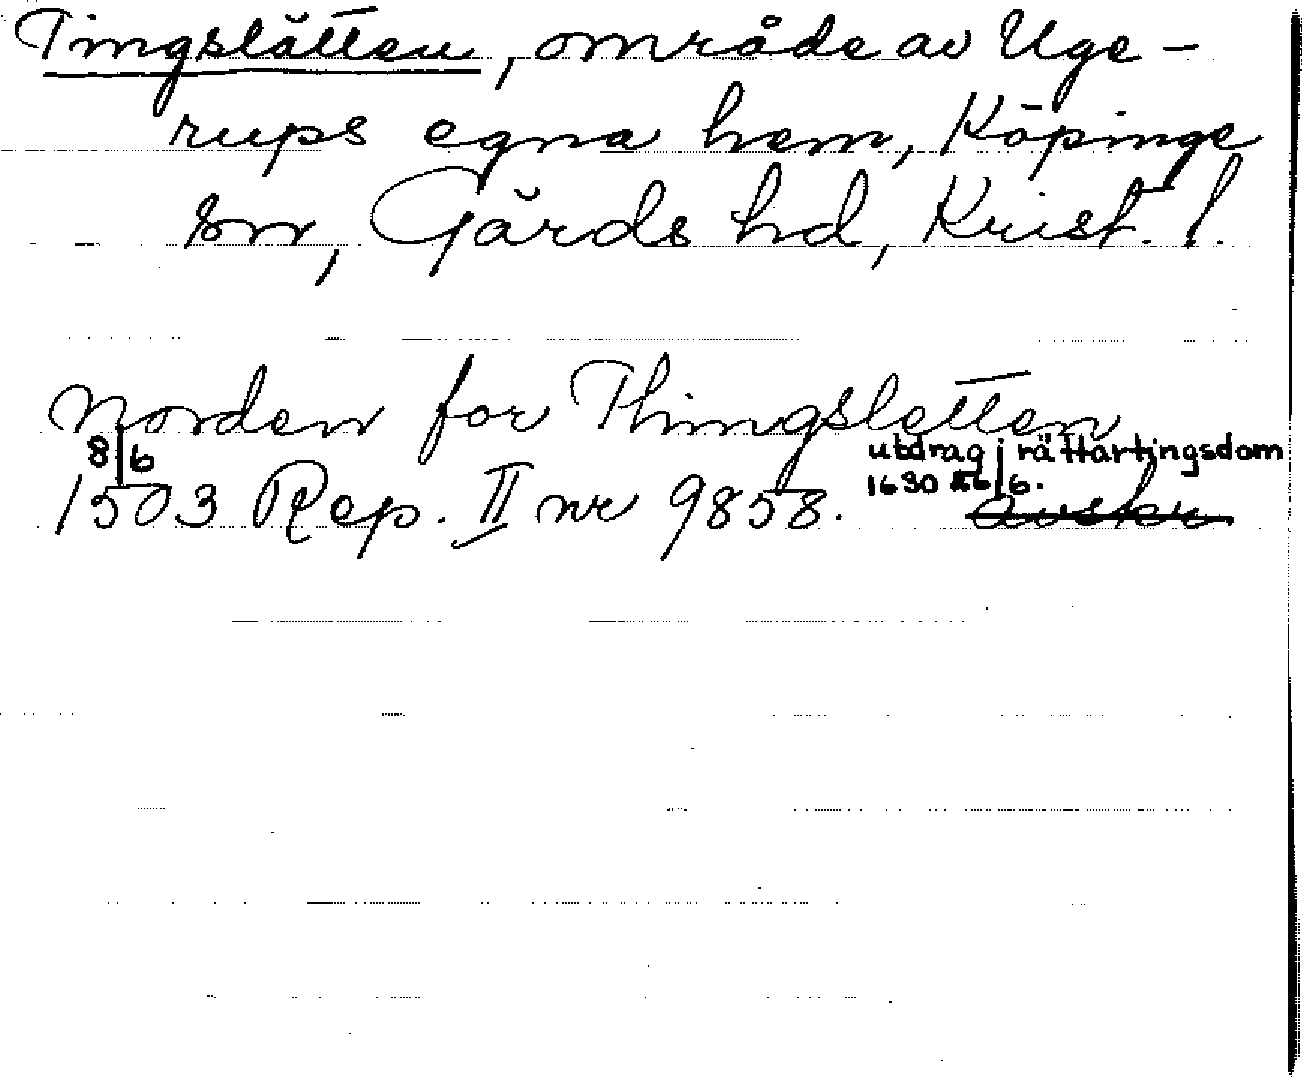 Tingslätten, område av Uge-
rups egna hem, Köpinge
sn, Gärds hd, Krist. l.
Norden for Thingsletten
8/6 1503 Rep. II nr 9858. utdrag i rättartingsdom
1630 26/6. avskr